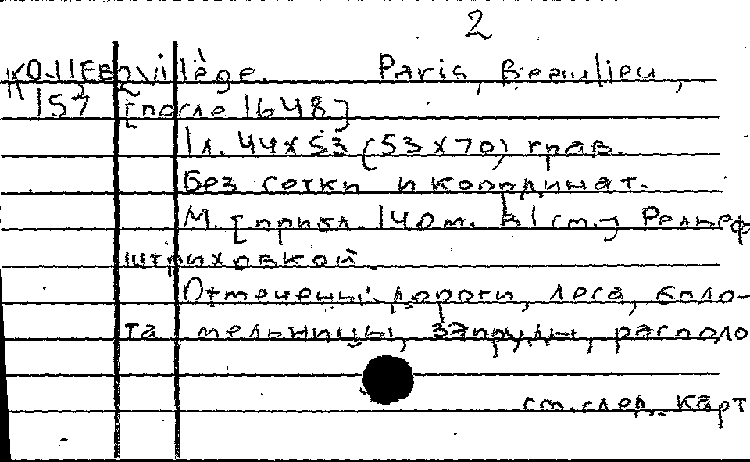 2
К 0.11 Ев 2 vilège. Paris, Beaulieu,
157 [после 1648]
1 л. 44x53 (53x70) грав.
Без сетки и координат.
М. [прибл. 140 м. в 1 см.] Рельеф
штриховкой.
Отмечены: дороги, леса, боло-
та мельницы, запруды, располо
см. след. карт